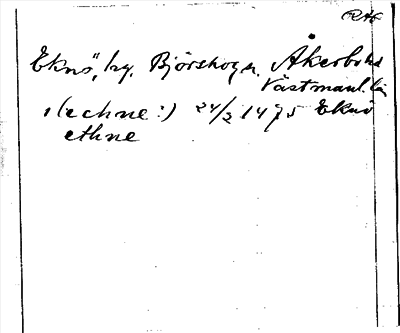 RAP
Eknö, by. Björskog sn. Åkerbo hd
Västmanl. län
i (echne:) 24/2 1475 Eknö
ethne